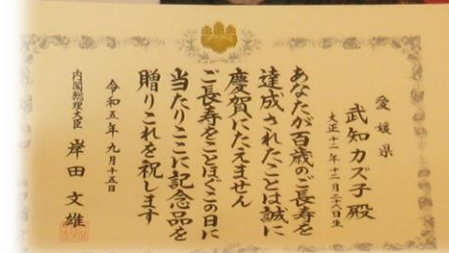 愛媛県
武知カズ子殿
大正十二年十二月二十八日生
あなたが百歳のご長寿を
達成されたことは誠に
慶賀にたえません
ご長寿をことほぐこの日に
当たりここに記念品を
贈りこれを祝します
令和五年九月十五日
内閣総理大臣 岸田文雄